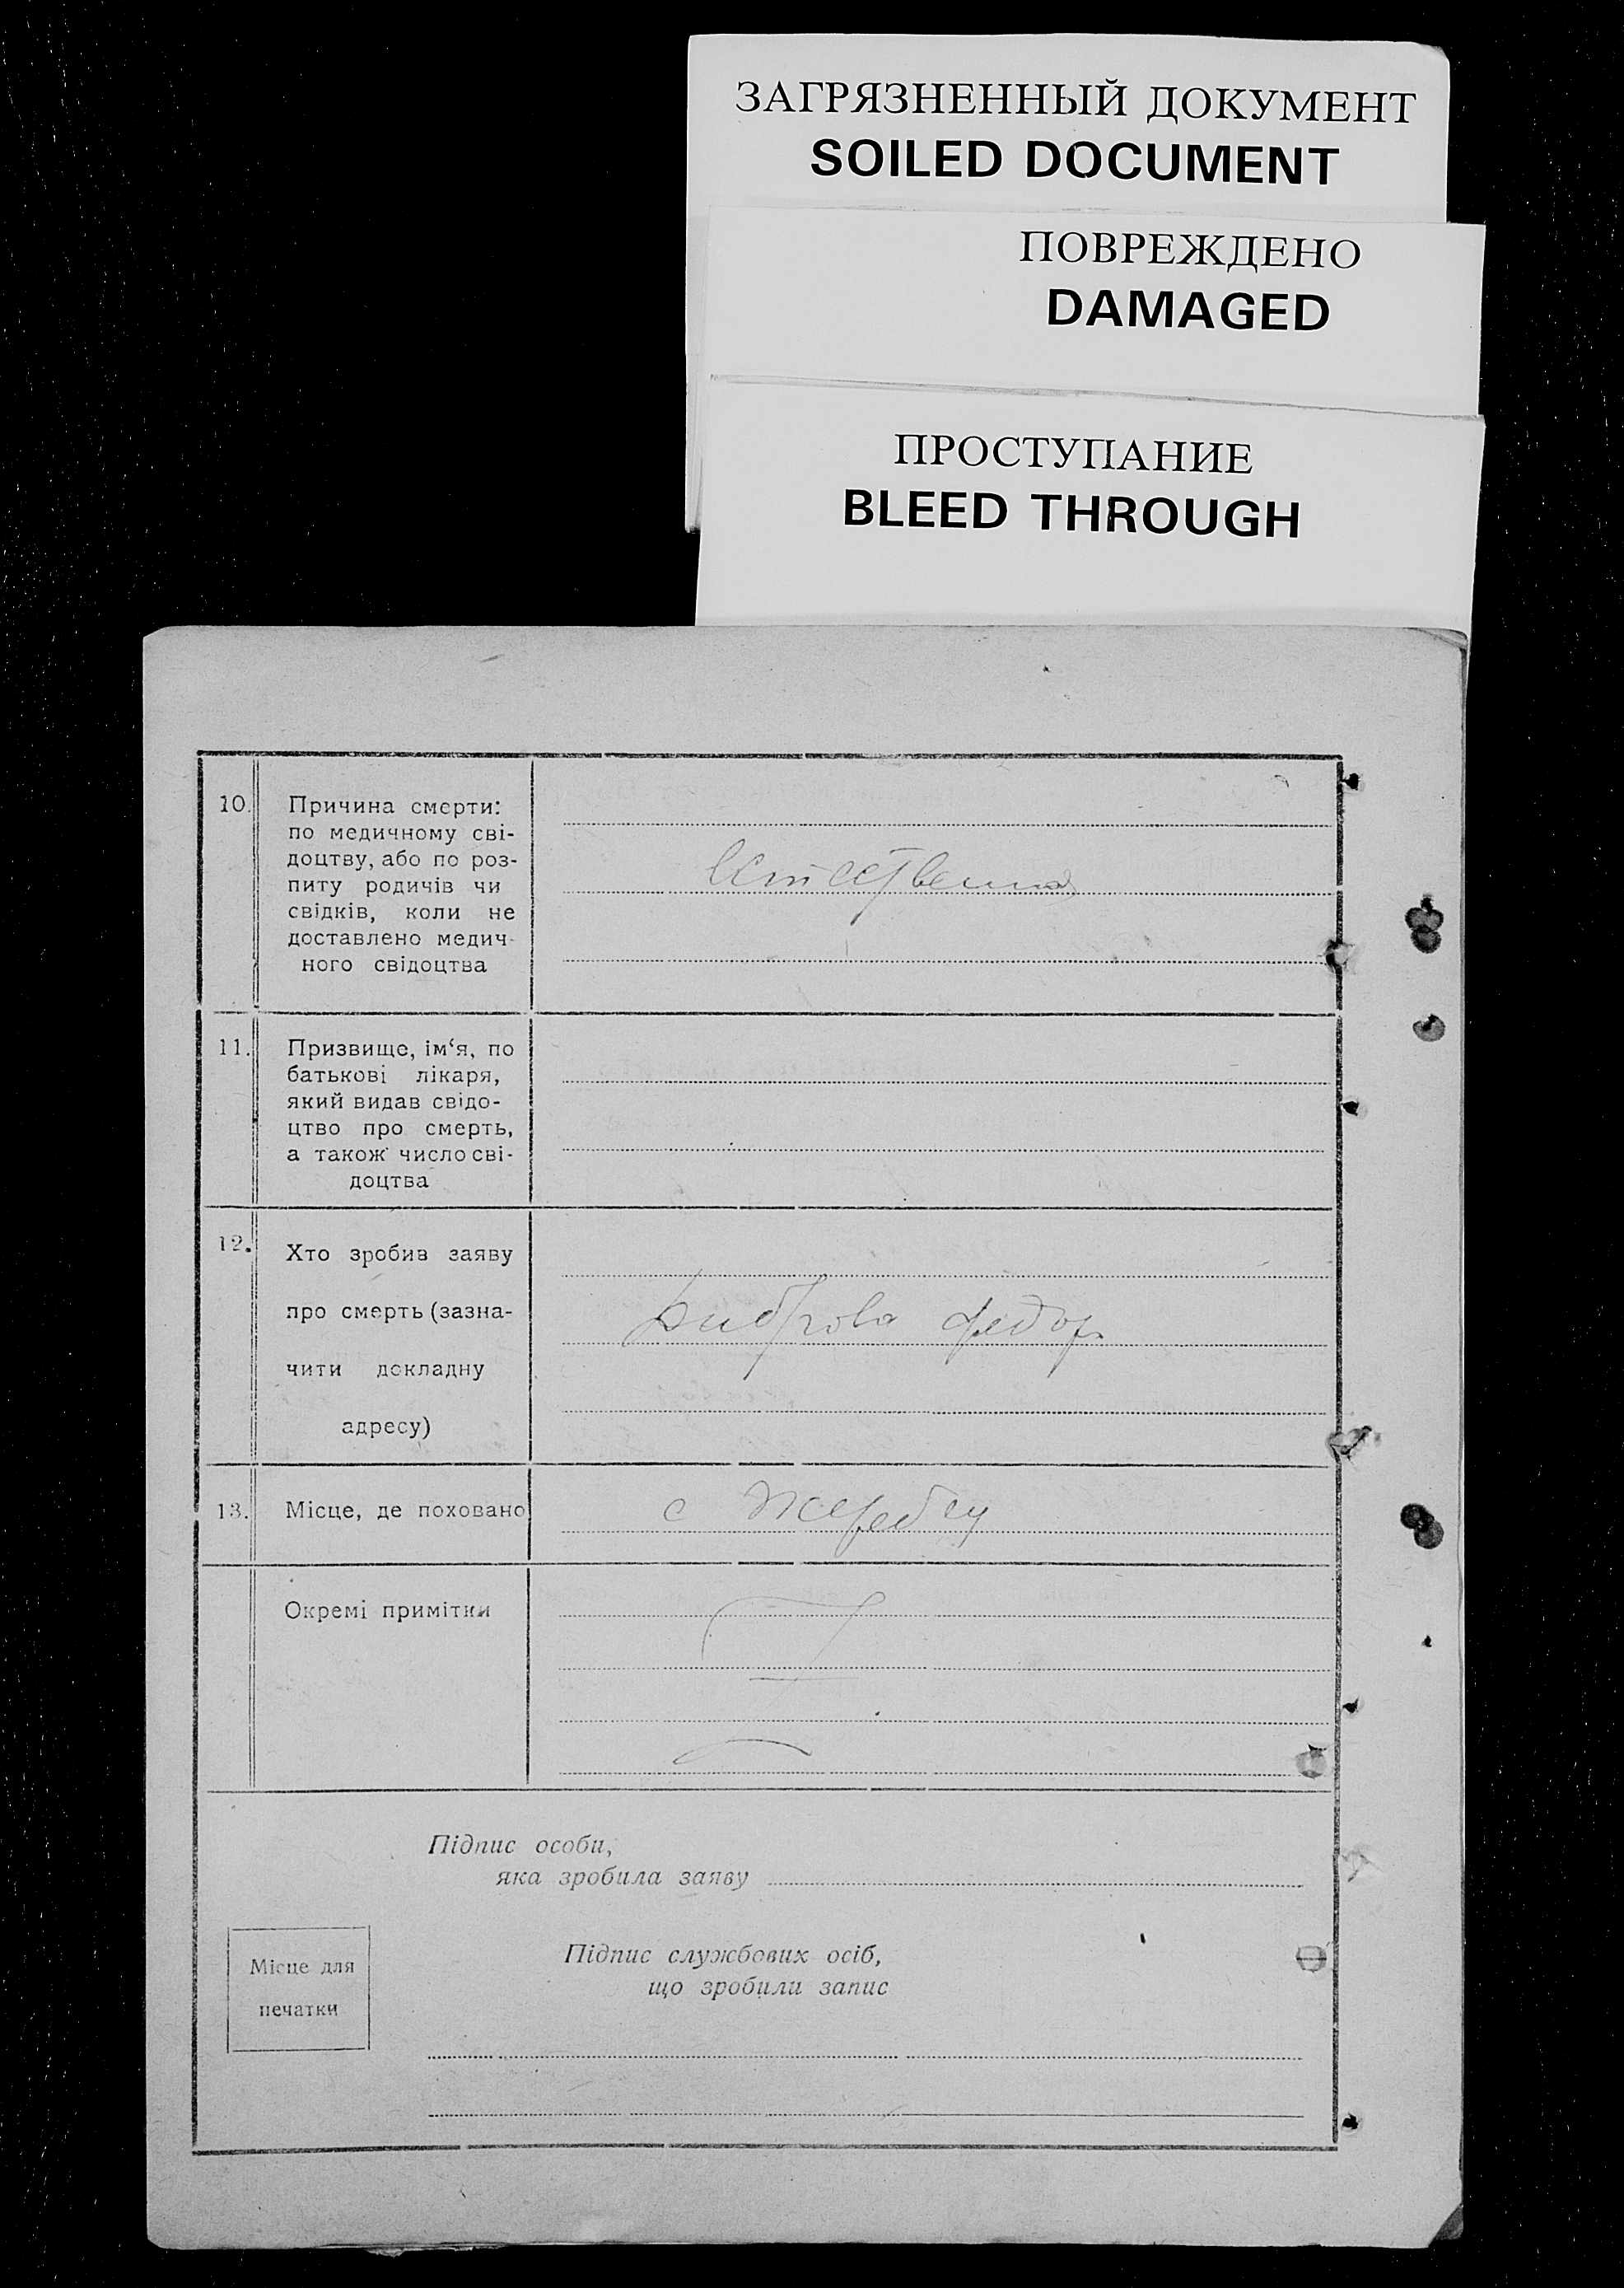 ЗАГРЯЗНЕННЫЙ ДОКУМЕНТ
SOILED DOCUMENT
ПОВРЕЖДЕНО
DAMAGED
ПРОСТУПАНИЕ
BLEED THROUGH
10. Причина смерти:
по медичному сві-
доцтву, або по роз-
питу родичів чи
свідків, коли не
доставлено медич-
ного свідоцтва
Естественная
11. Призвище, ім‘я, по
батькові лікаря,
який видав свідо-
цтво про смерть,
а також число сві-
доцтва
12. Хто зробив заяву
про смерть (зазна-
чити докладну
адресу)
Федор
13. Місце, де поховано
с
Окремі примітки
Підпис особи,
яка зробила заяву
Місце для
печатки
Підпис службових осіб,
що зробили запис